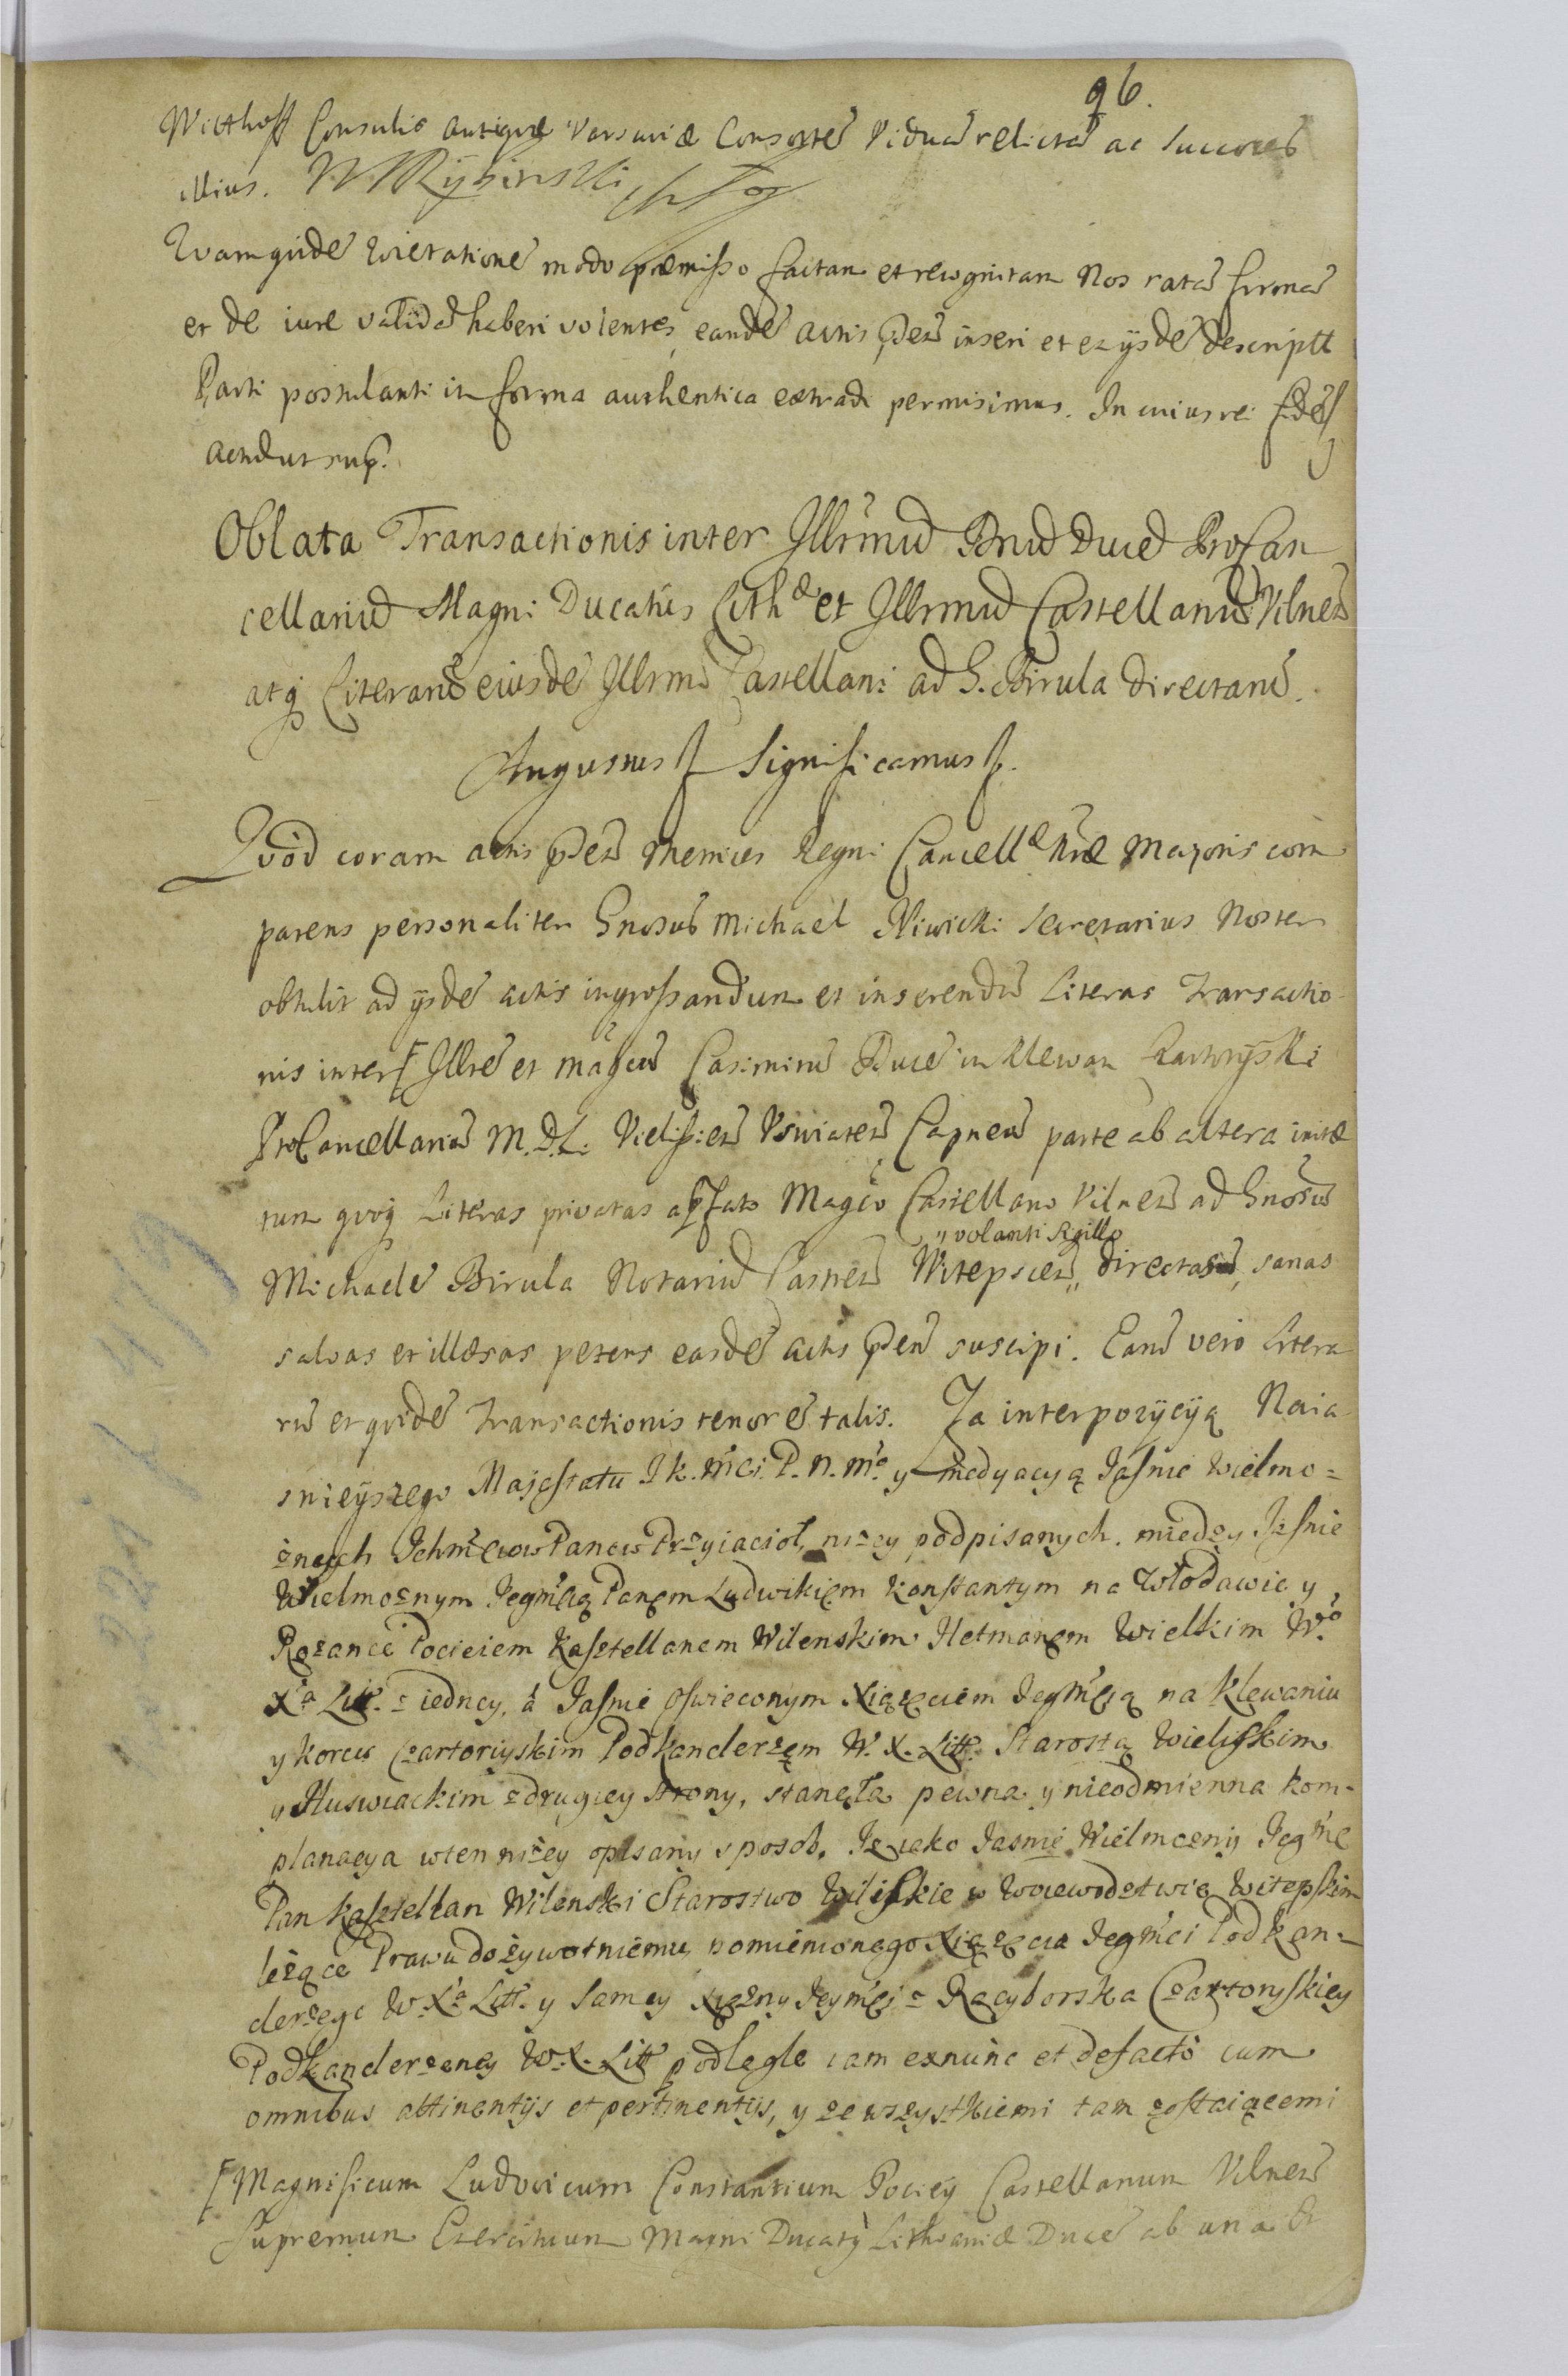 96.
Witthoff Consulis antiquæ Varsaviæ Consorte Vidua relicta ac Succores
illius. W Rybinski
Quamquide quietatione modo præmisso factam et recognitam Nos rata firma
et de iure valida haberi volentes, eande actis pden inseri et ex ijsde descriptt
Parti postulanti in forma authentica extradi permisimus. In cuius rei fide
Actu ut sup.
Oblata Transactionis inter Illrmu Pnu Duce ProCan
cellariu Magni Ducatus Lithæ et Illrmu Castellanu Vilnen
atq Literaru eiusde Illrmi Castellani ad G. Birula directaru.
Augustus Significamus
Quod coram actis pden Metrices Regni Cancellæ Nræ Majoris com
parens personaliter Gnosus Michael Niwicki Secretarius Noster
obtulit ad ijsde actis ingrossandum et inserendu Literas Transactio
nis inter [ Illre et magcu Casimiru Duce in Klewan Czartoryski
ProCancellariu M. D. L. Vielisien Usviaten Capneu parte ab altera initæ
tum quoq Literas privatas a pfato Magco Castellano Vilnen ad Gnosu
" volanti sigillo
Michaele Birula Notariu Castren Witepscien " directas, sanas
salvas et illæsas petens easde actis pden suscipi. Earu vero Litera
ru et quide Transactionis tenor e talis. Za interpozycyą Naia
snieyszego Majestatu J k. mci P. n. mo y medyacyą Jasnie Wielmo=
żnych Ichmciow Panow Przyiacioł, niżey podpisanych. między Jasnie
Wielmożnym Jegmcią Panem Ludwikiem Konstantym na Włodawie y
Rożance Pocieiem Kasztellanem Wilenskim Hetmanem Wielkim Wo
Xa Litt. z iedney, á Jasnie Oswieconym Xiążęciem Jegmcią na Klewaniu
y Korcu Czartoryiskim Podkanclerzem W. X. Litt. Starostą Wieliskim
y Huswiackim z drugiey strony, stanęła pewna y nieodmienna kom-
planacya w ten niżey opisany sposob. Iż iako Jasnie Wielmożny Jegmc
Pan Kasztellan Wilenski Starostwo Wiliskie w Woiewodztwie Witepskim
leżące Prawu dożywotniemu pomienionego Xiążęcia Jegmci Podkan=
clerzego W Xa Litt. y Samey Xiężny Jeymci z Racyborska Czartoryskiey
Podkanclerzeney W. X. Litt podlegle iam exnunc et defacto cum
omnibus attinentijs et pertinentijs, y ze wszystkiemi tam zostaiącemi
[ Magnificum Ludovicum Constantium Pociey Castellanum Vilnen
Supremum Exercituum Magni Ducatq Lithvaniæ Duce ab una Et